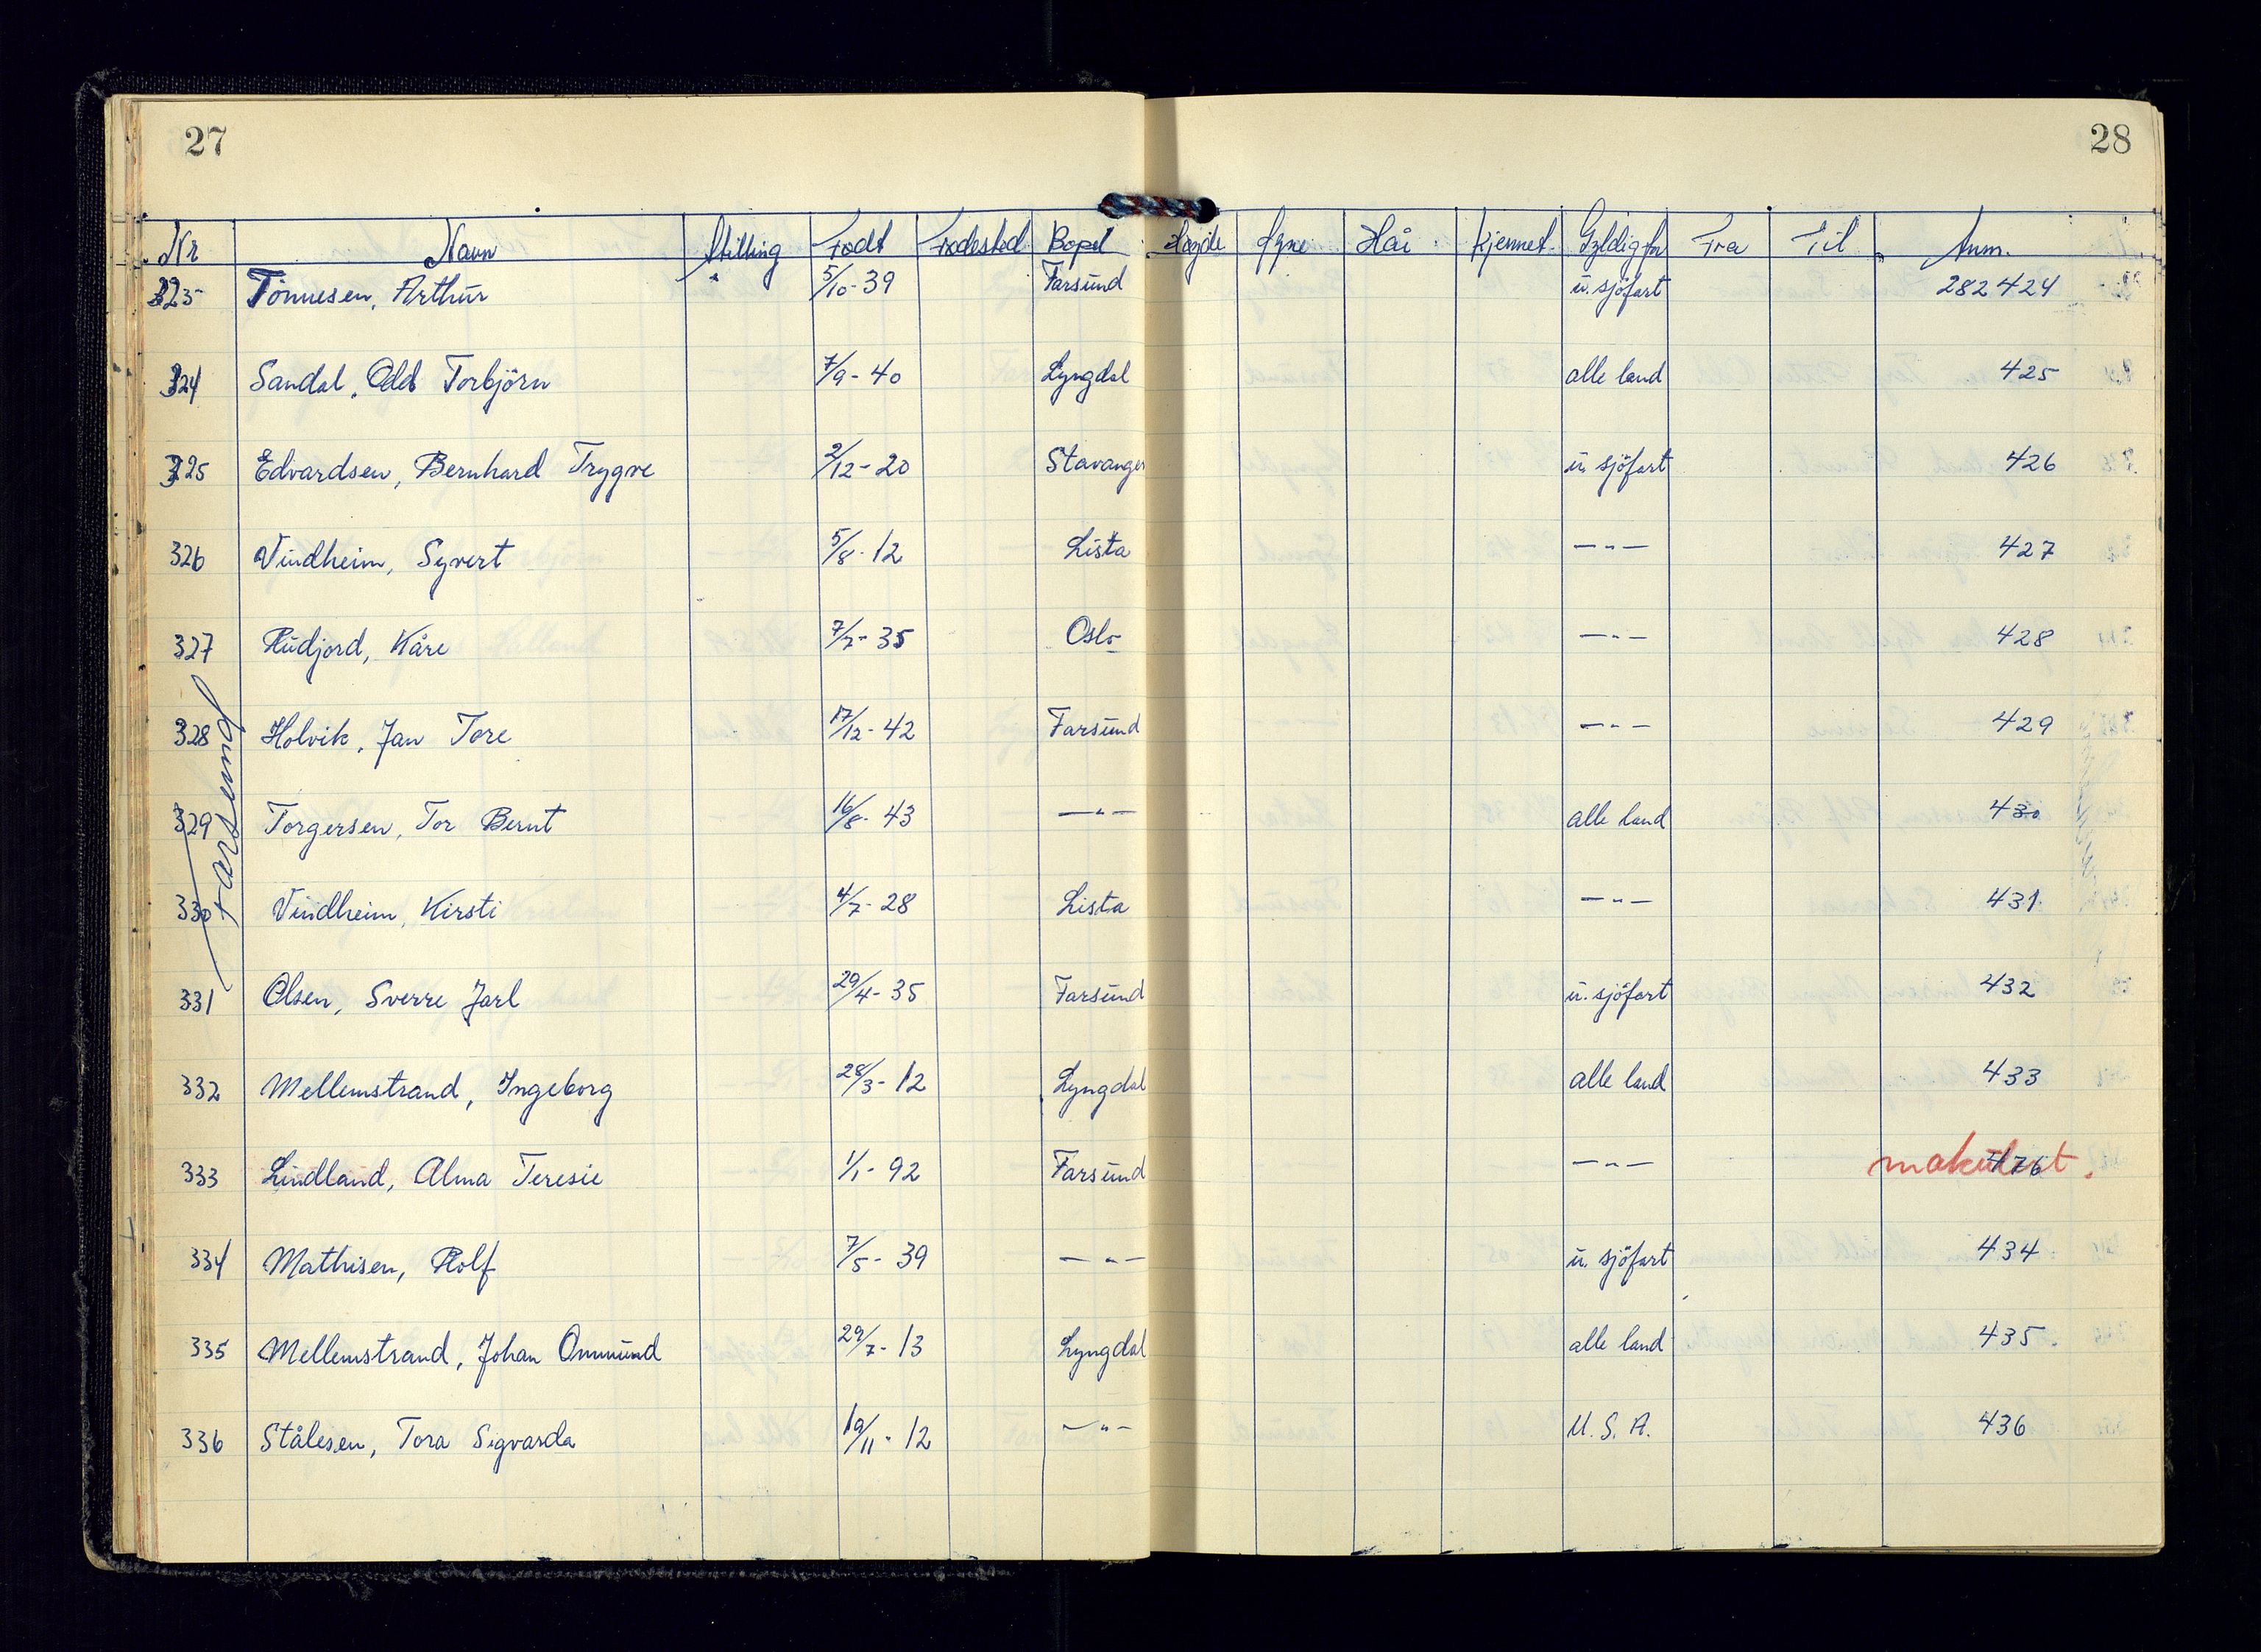 27
28
Nr Navn Stilling Født Fødested Bopel Høyde Øyne Hår Kjennet. Gyldig for Fra Til Anm.
323 Tönnesen, Arthur 5/10-39 Farsund u. sjöfart 282424
324 Sandal, Odd Torbjörn 7/9-40 Lyngdal alle land 425
325 Edvardsen, Bernhard Trygve 2/12-20 Stavanger u. sjöfart 426
326 Vindheim, Syvert 5/8-12 Lista —"— 427
327 Rudjord, Kåre 7/7-35 Oslo —"— 428
328 Holvik, Jan Tore 17/12-42 Farsund —"— 429
329 Torgersen, Tor Bernt 16/8-43 —"— alle land 430
Farsund
330 Vindheim, Kirsti 4/7-28 Lista —"— 431
331 Olsen, Sverre Jarl 29/4-35 Farsund u. sjöfart 432
332 Mellemstrand, Ingeborg 28/3-12 Lyngdal alle land 433
333 Lindland, Alma Teresie 1/1-92 Farsund —"— makulert.
334 Mathisen, Rolf 7/5-39 —"— u. sjöfart 434
335 Mellemstrand, Johan Ommund 29/7-13 Lyngdal alle land 435
336 Stålesen, Tora Sigvarda 19/11-12 —"— U.S.A. 436